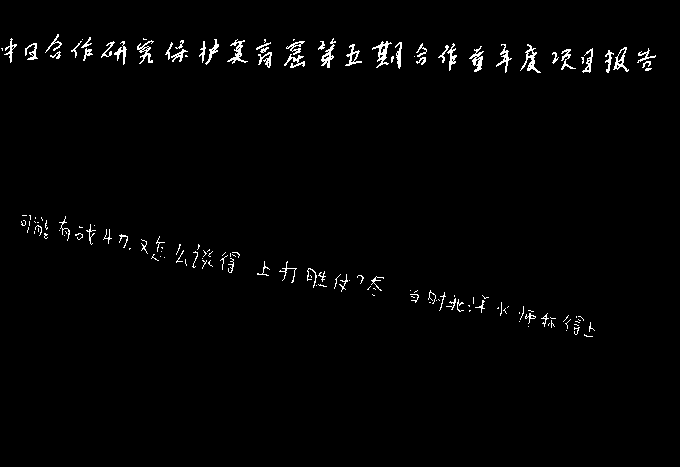 中日合作研究保护莫高窟第五期合作首年度项目报告
可能有战斗力,又怎么谈得上打胜仗?参 当时北洋水师称得上